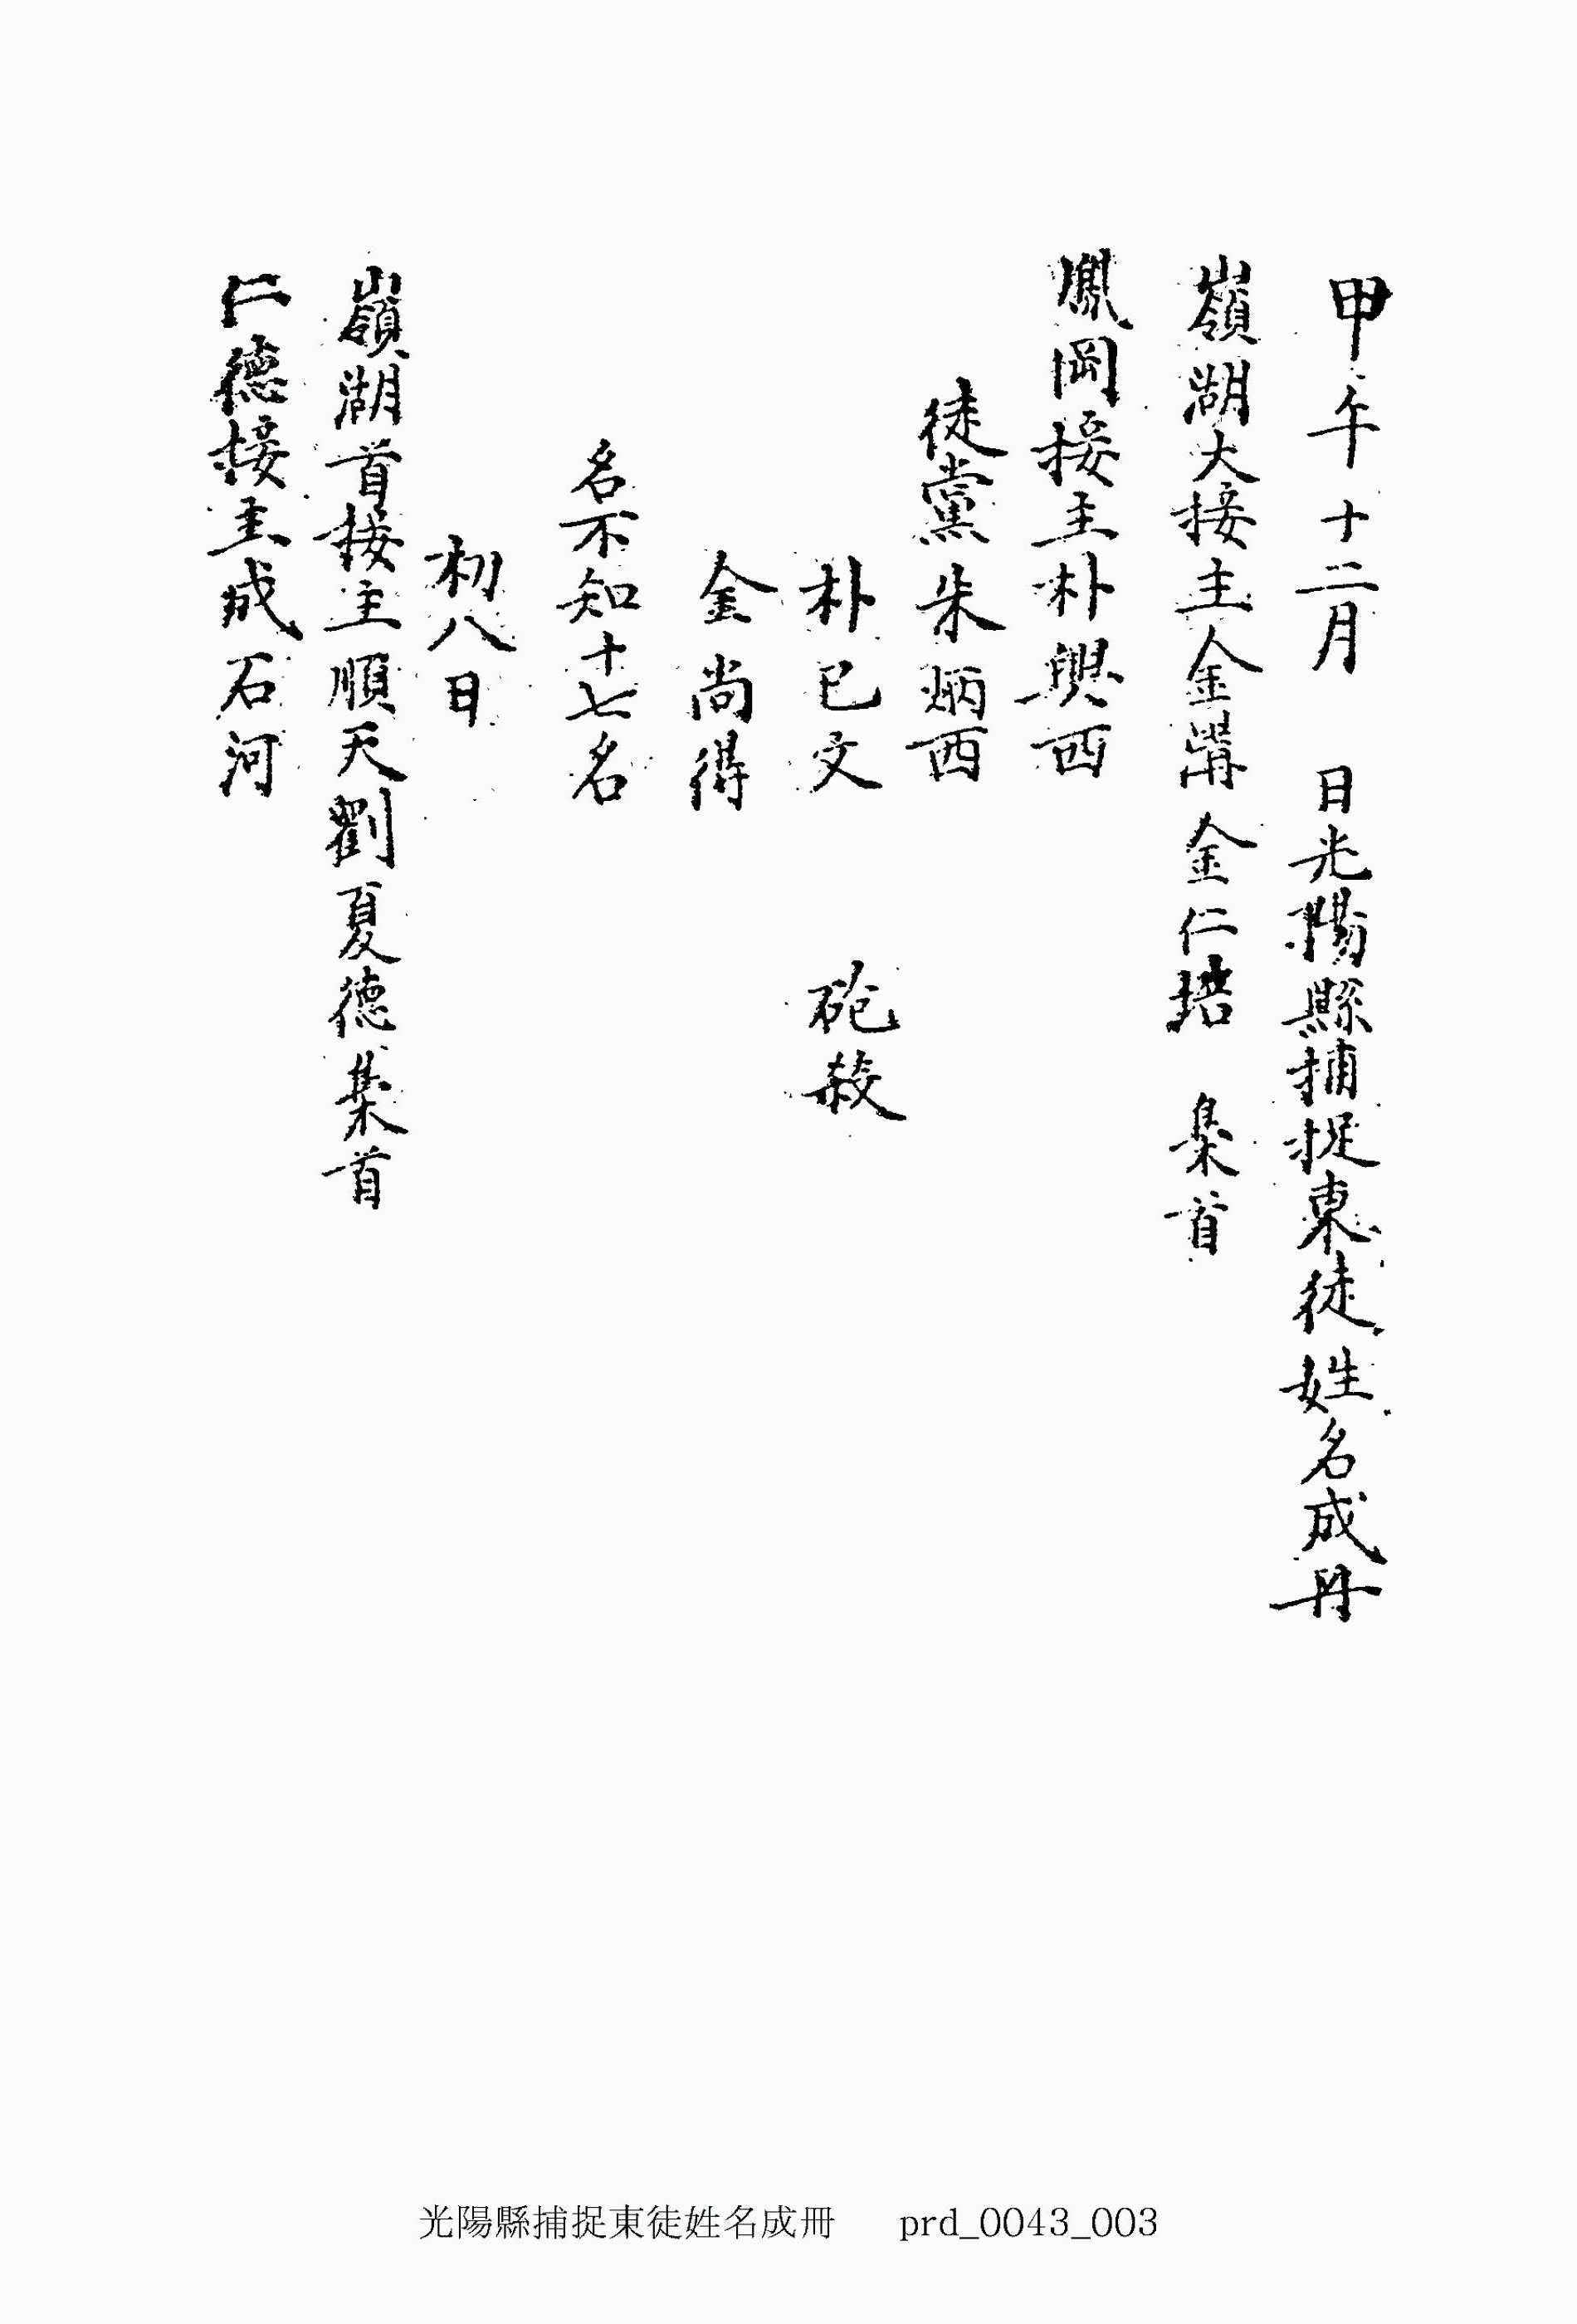 甲午十二月 日光陽縣捕捉東徒姓名成冊
嶺湖大接主金溝金仁培 梟首
鳳岡接主朴興西
徒黨朱炳西
朴已文 砲殺
金尚得
名不知十七名
初八日
嶺湖首接主順天劉夏德梟首
仁德接主成石河
光陽縣捕捉東徒姓名成冊 prd_0043_003